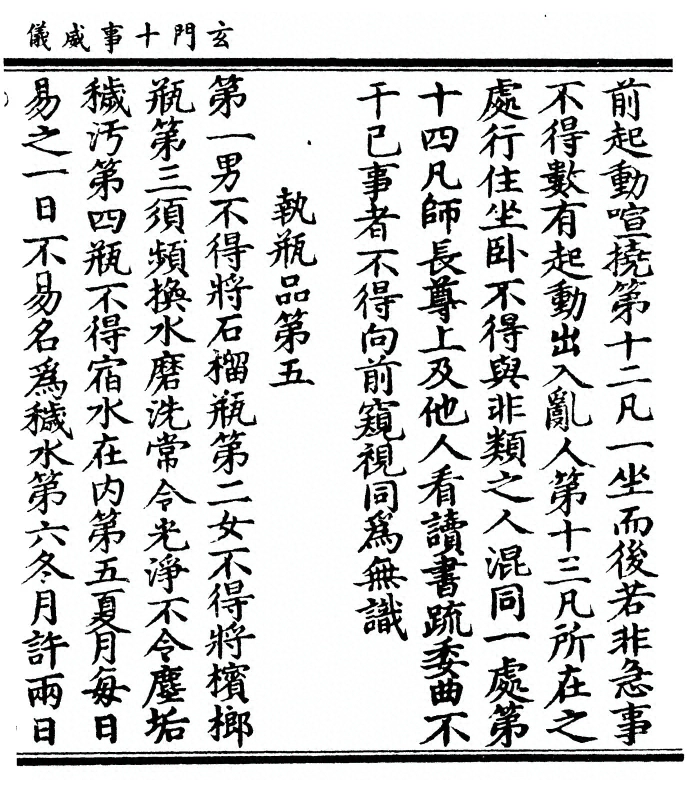 玄門十事威儀
前起動喧撓第十二凡一坐而後若非急事
不得數有起動出入亂人第十三凡所在之
處行住坐卧不得與非類之人混同一處第
十四凡師長尊上及他人看讀書疏委曲不
干己事者不得向前窺視同爲無識
執瓶品第五
第一男不得將石榴瓶第二女不得將檳榔
瓶第三須頻換水磨洗常令光淨不令塵垢
穢汚第四瓶不得宿水在内第五夏月每日
易之一日不易名爲穢水第六冬月許兩日